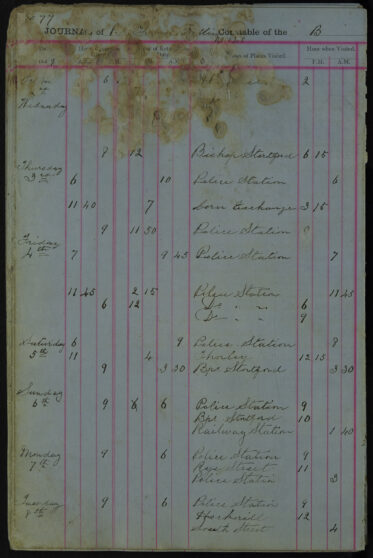 77
JOURNAL of P Constable of the B
Hour when Visited.
of Places Visited.
A.M. P.M. A.M. P.M. A.M.
6 2
Wednesday
9 12 Bishop Stortford 6 15
Thursday
3rd 6 10 Police Station 6
11 40 7 Corn Exchange 3 15
9 11 30 Police Station 9
Friday
4th 7 9 45 Police Station 7
11 45 2 15 Police Station 11 45
6 12 Do " " 6
Do " " 9
Saturday 6 9 Police Station 8
5th 11 4 Thorley 12 15
9 3 30 Bps Stortford 3 30
Sunday
6th 9 6 6 Police Station 9
Bps Stortford 10
Railway Station 1 40
Monday 9 6 Police Station 9
7th Rye Street 11
Police Station 3
Tuesday 9 6 Police Station 9
8th Hockerill 12
South Street 4